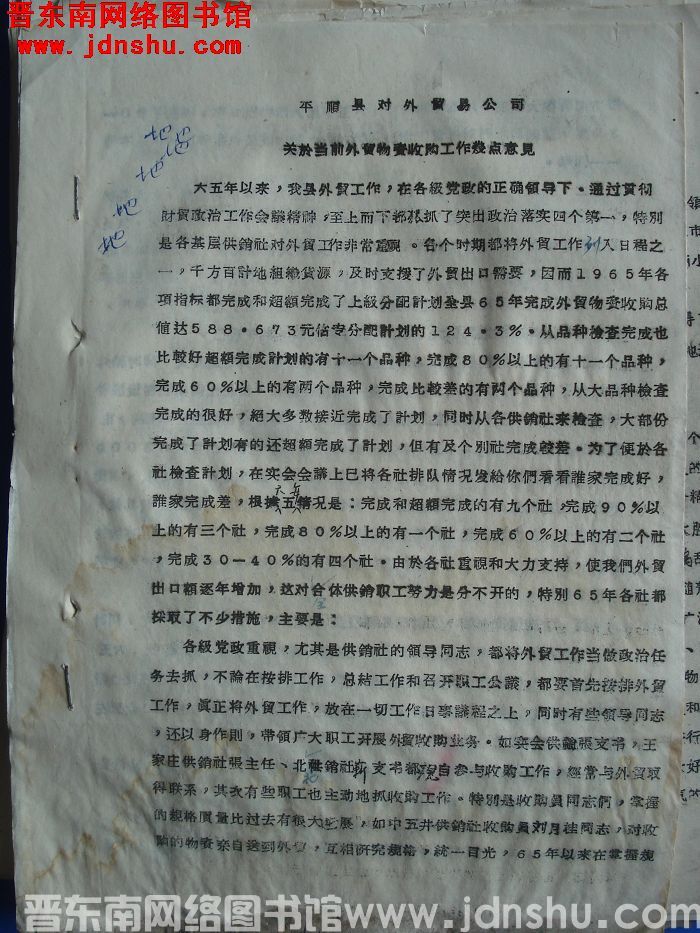 晋东南网络图书馆
www.jdnshu.com
平順县对外貿易公司
关於当前外貿物资收购工作幾点意見
六五年以来，我县外貿工作，在各級党政的正确領导下。通过貫彻
財貿政治工作会議精神，至上而下都狠抓了突出政治落实四个第一，特別
是各基层供銷社对外貿工作非常重視。各个时期都将外貿工作列入日程之
一，千方百計地組織貨源，及时支援了外貿出口需要，因而1965年各
項指标都完成和超額完成了上級分配計划全县65年完成外貿物资收购总
值达588·673元佔专分配計划的124·3%。从品种檢查完成也
比較好超額完成計划的有十一个品种，完成80%以上的有十一个品种，
完成60%以上的有两个品种，完成比較差的有两个品种，从大品种檢查
完成的很好，絕大多数接近完成了計划，同时从各供銷社来檢查，大部份
完成了計划有的还超額完成了計划，但有及个别社完成較差。为了便於各
社檢查計划，在实会会議上已将各社排队情况发給你們看看誰家完成好，
誰家完成差，根据五情况是：完成和超額完成的有九个社，完成90%以
上的有三个社，完成80%以上的有一个社，完成60%以上的有二个社
，完成30—40%的有四个社。由於各社重視和大力支持，使我們外貿
出口額逐年增加，这对全体供銷职工努力是分不开的，特別65年各社都
採取了不少措施，主要是：
各級党政重視，尤其是供銷社的領导同志，都将外貿工作当做政治任
务去抓，不論在按排工作，总結工作和召开职工公議，都要首先按排外貿
工作，眞正将外貿工作，放在一切工作日事議程之上，同时有些領导同志
，还以身作則，带領广大职工开展外貿收购业务。如实会供銷張支书，王
家庄供銷社張主任、北社供銷社 支书都亲自参与收购工作，經常与外貿取
得联系，其次有些职工也主动地抓收购工作。特別是收购員同志們，掌握
的規格质量比过去有很大进展，如中五井供銷社收购員刘月桂同志，对收
购的物资亲自送到外貿，互相研究規格，統一目光，65年以来在掌握規
晋东南网络图书馆 www.jdnshu.com